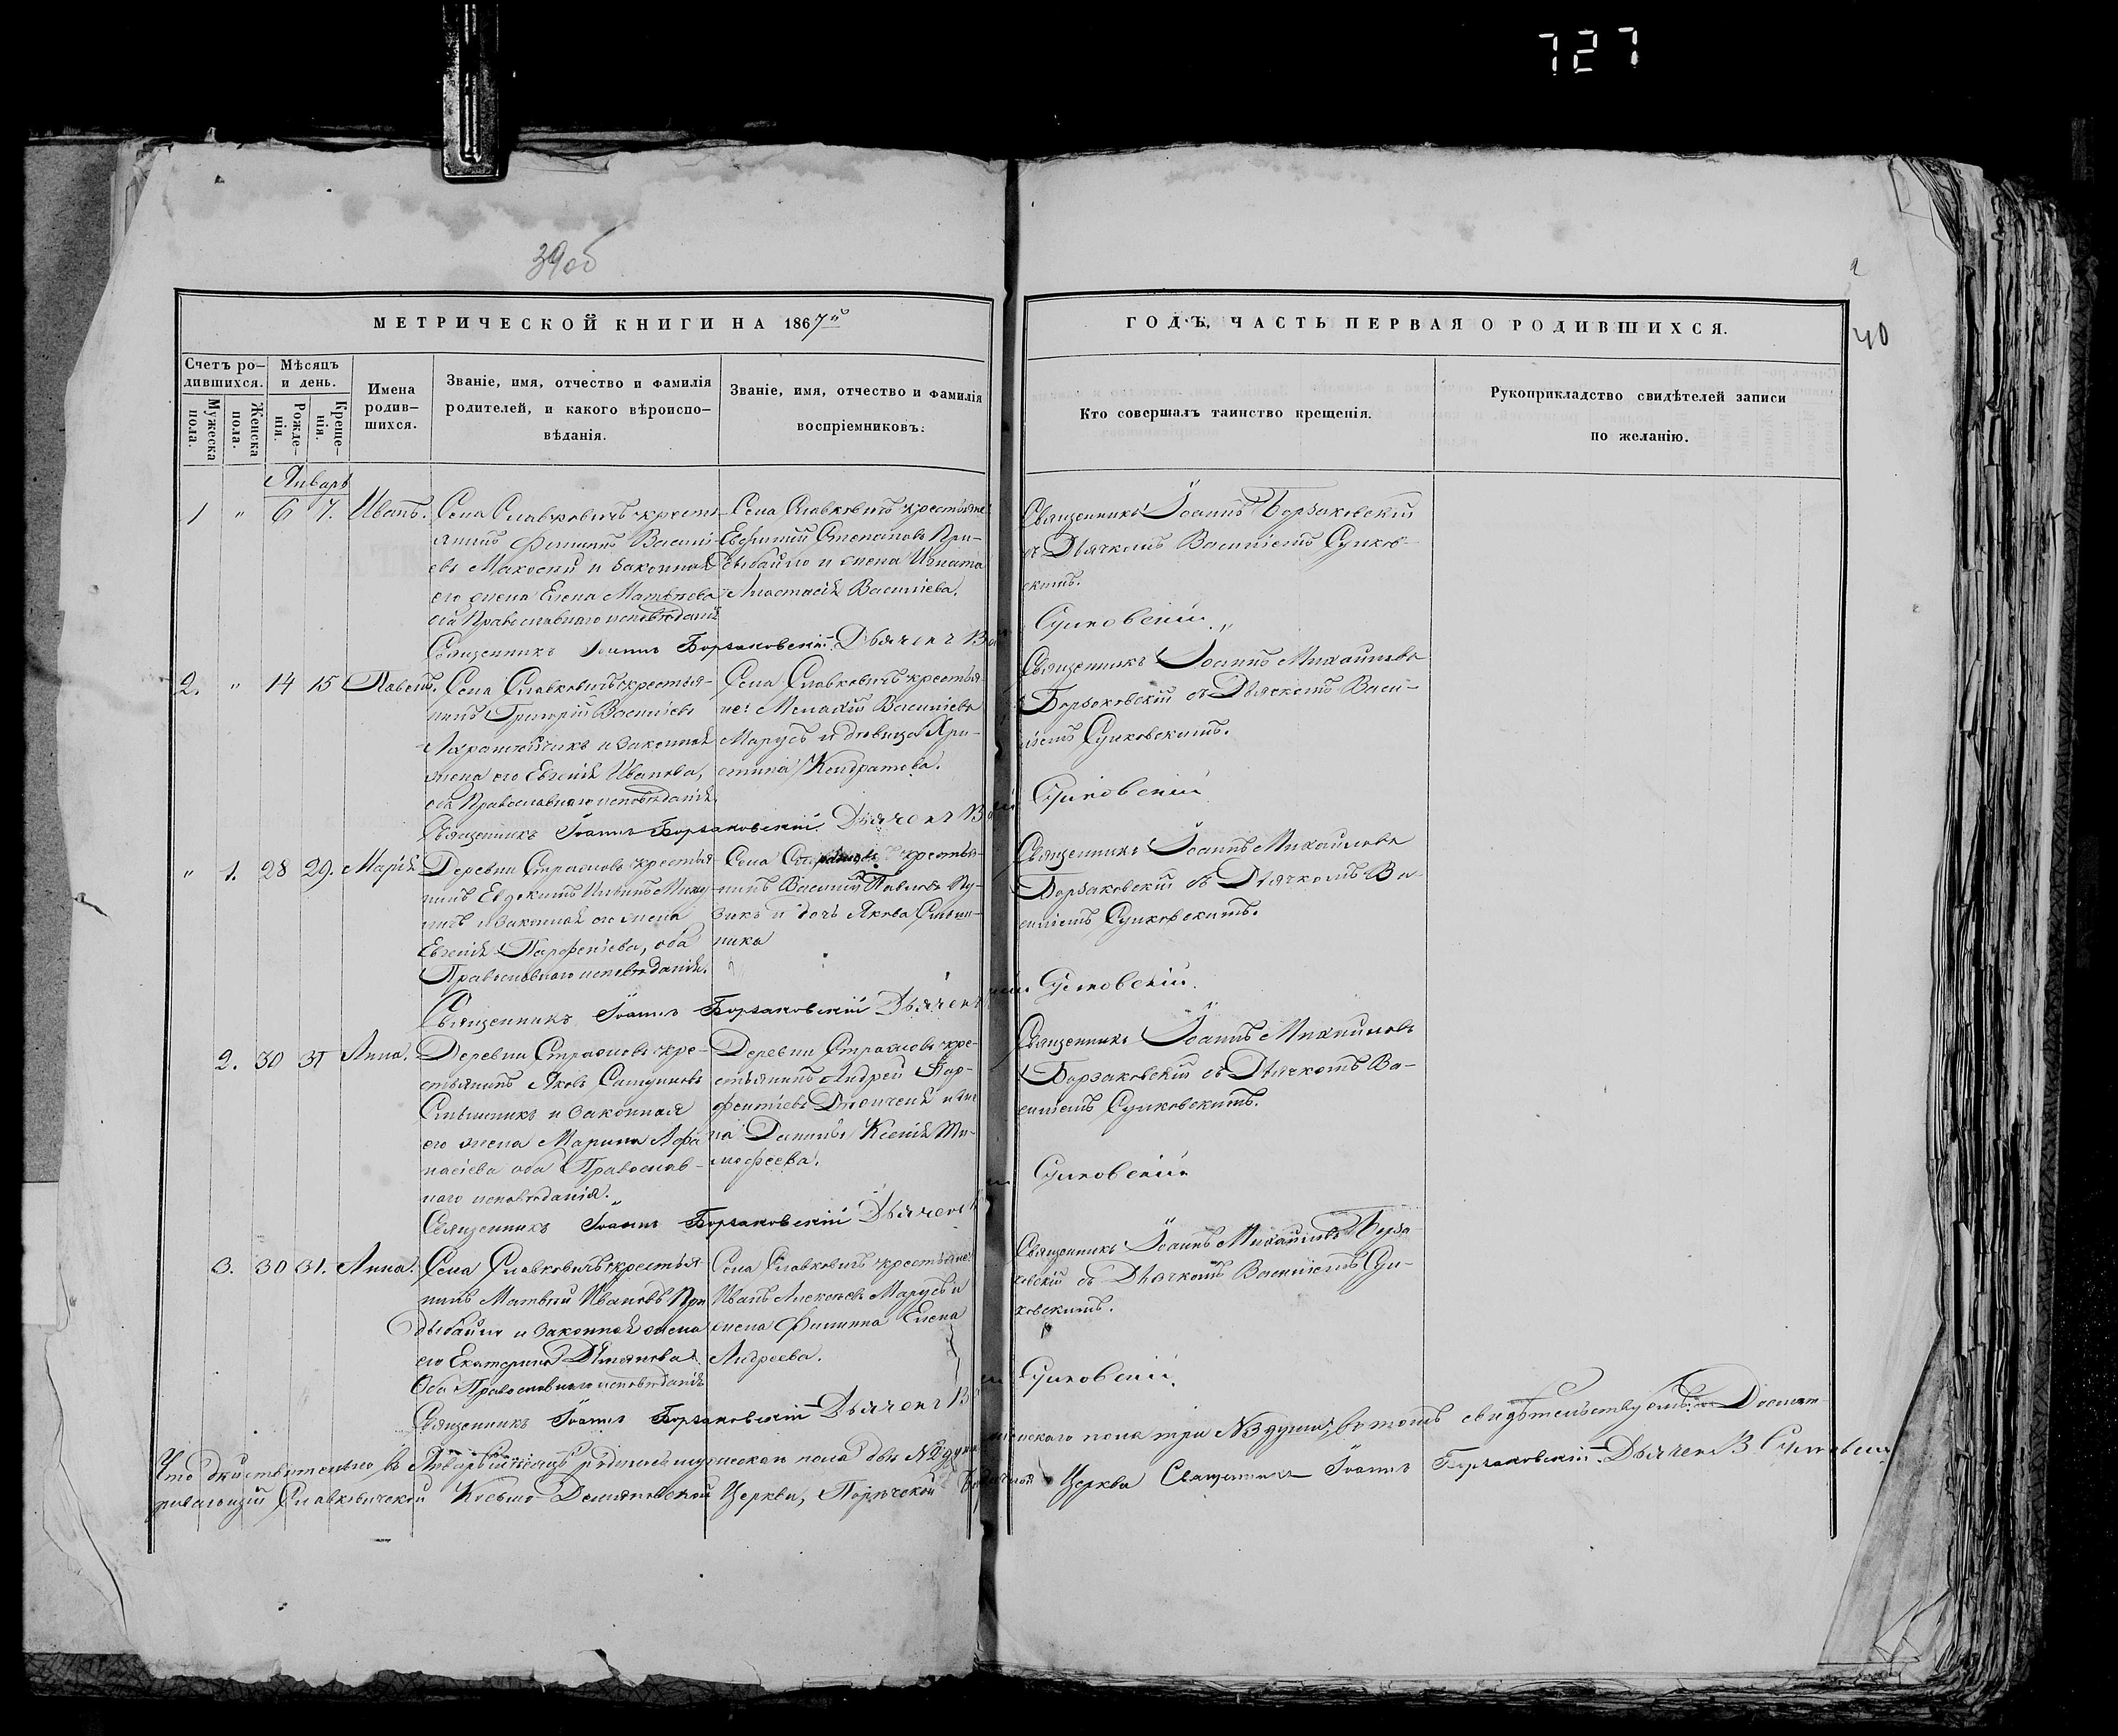 727
39об
2
40
МЕТРИЧЕСКОЙ КНИГИ НА 1867й
ГОДЪ, ЧАСТЬ ПЕРВАЯ О РОДИВШИХСЯ.
Счетъ ро-
дившихся.
Мужеска
пола.
Женска
пола.
Мѣсяцъ
и день.
Рожде-
нія.
Креще-
нія.
Имена
родив-
шихся.
Званіе, имя, отчество и фамилія
родителей, и какого вѣроиспо-
вѣданія.
Званіе, имя, отчество и фамилія
воспріемниковъ.
Кто совершалъ таинство крещенія.
Рукоприкладство свидѣтелей записи
по желанію.
Январь
1 " 6 7. Иванъ.
Села Славковичъ кресть
янинъ Филипъ Василі-
евъ и законная
его жена Елена Матвѣева
оба Православнаго исповѣданія
Села Славковичъ крестьяне
Евфимій Степановъ При-
дыбайло и жена Игната
Анастасія Василіева.
Священникъ Іоаннъ Борзаковскій
съ Дьячкомъ Василіемъ Сулков-
скимъ.
Священникъ Іоаннъ Борзаковскій Дьячекъ В
Сулковскій
2. " 14 15 Павелъ.
Села Славковичъ крестья-
нинъ Григорій Василіевъ
и законная
жена его Евгенія Иванова,
оба Православнаго исповѣданія.
Села Славковичъ крестья-
не: Василіевъ
Марусъ и дѣвица Хри-
стина Кондратова.
Священникъ Іоаннъ Михайловъ
Борзаковскій съ Дьячкомъ Васи-
ліемъ Сулковскимъ.
Священникъ Іоаннъ Борзаковскій Дьячекъ В
Сулковскій
" 1. 28 29. Марія
Деревни Страховъ крестья-
нинъ Евдокимъ
и законная его жена
Евгенія Парфеніева, оба
Православнаго исповѣданія.
Села крестья-
нинъ Василій Павловъ Пу-
зикъ и дочь Якова
ника
Священникъ Іоаннъ Михайловъ
Борзаковскій съ Дьячкомъ Ва-
силіемъ Сулковскимъ.
Священникъ Іоаннъ Борзаковскій Дьячекъ
Сулковскій.
2. 30 31 Анна.
Деревни Страховъ кре-
стьянинъ Яковъ
и законная
его жена Марина Афа
насіева оба Православ-
наго исповѣданія.
Деревни Страховъ кре-
стьянинъ Андрей Пар-
фентіевъ и же
на Ксенія Ти-
мофеева.
Священникъ Іоаннъ Михайловъ
Борзаковскій съ Дьячкомъ Ва-
силіемъ Сулковскимъ.
Священникъ Іоаннъ Борзаковскій Дьячекъ
Сулковскій
3. 30 31. Анна.
Села Славковичъ крестья-
нинъ Матвѣй Ивановъ При
дыбайло и законная жена
его Екатерина Демянова
Оба Православнаго исповѣданія
Села Славковичъ крестьяне
Иванъ Алексѣевъ Марусъ и
жена Филиппа Елена
Андреева.
Священникъ Іоаннъ Михайловъ Борза
ковскій съ Дьячкомъ Василіемъ Сул-
ковскимъ.
Священникъ Іоаннъ Борзаковскій Дьячекъ В
Сулковскій.
Что дѣйствительно въ Январѣ мѣсяцѣ родилось мужеска пола двѣ №2 души женскаго пола три №3 души, въ томъ свидѣтельствуемъ.
Славковичской Косьмо-Деміяновской Церкви, Церкви Священникъ Іоаннъ Борзаковскій Дьячекъ В. Сулковскій